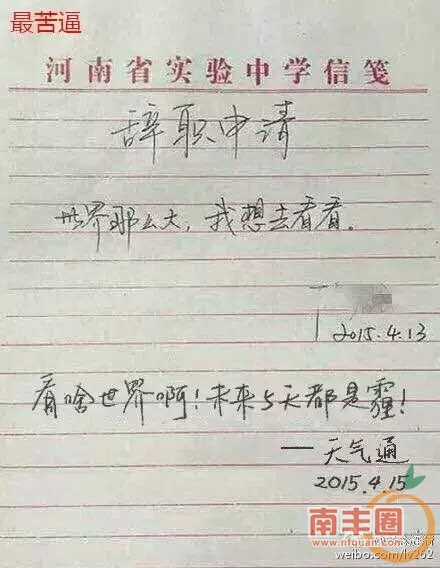 最苦逼
河南省实验中学信笺
辞职申请
世界那么大，我想去看看.
2015.4.13
看啥世界啊！未来5天都是霾！
——天气通
2015.4.15
南丰圈
www.nfquan.com
weibo.com/lx262